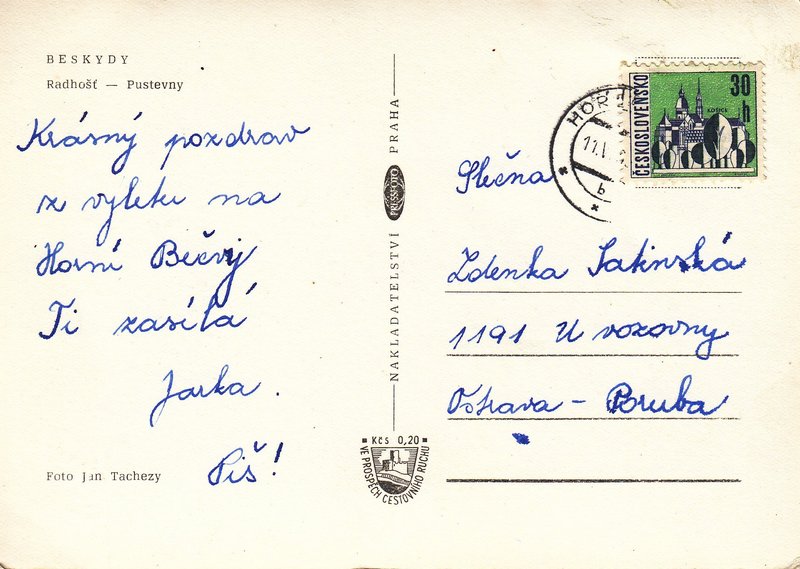 BESKYDY
Radhošť — Pustevny
Krásný pozdrav
z výletu na
Horní Bečvy
Ti zasílá
Jarka.
Piš!
Foto Jan Tachezy
NAKLADATELSTVÍ PRESSFOTO PRAHA
Kčs 0,20
VE PROSPĚCH CESTOVNÍHO RUCHU
ČESKOSLOVENSKO
30 h
KOŠICE
HOR
11.
b
Slečna
Zdenka
1191 U vozovny
Ostrava - Poruba